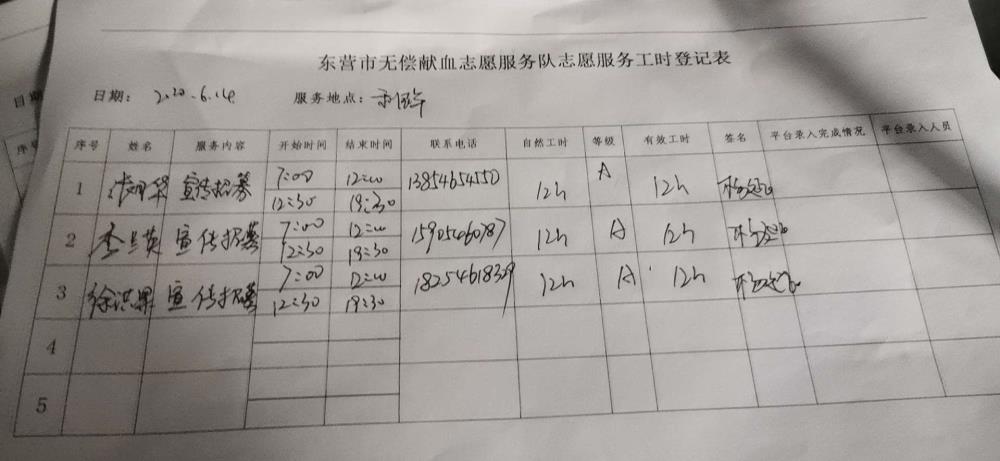 东营市无偿献血志愿服务队志愿服务工时登记表
日期: 2020.6.14 服务地点:
序号 姓名 服务内容 开始时间 结束时间 联系电话 自然工时 等级 有效工时 签名 平台录入完成情况 平台录入人员
1 宣传招募 7:00 12:00 13854654550 12h A 12h
12:30 19:30
2 李兰英 宣传招募 7:00 12:00 15905460787 12h A 12h
12:30 19:30
3 徐洪果 宣传招募 7:00 12:00 18254618329 12h A 12h
12:30 19:30
4
5
日期
序号